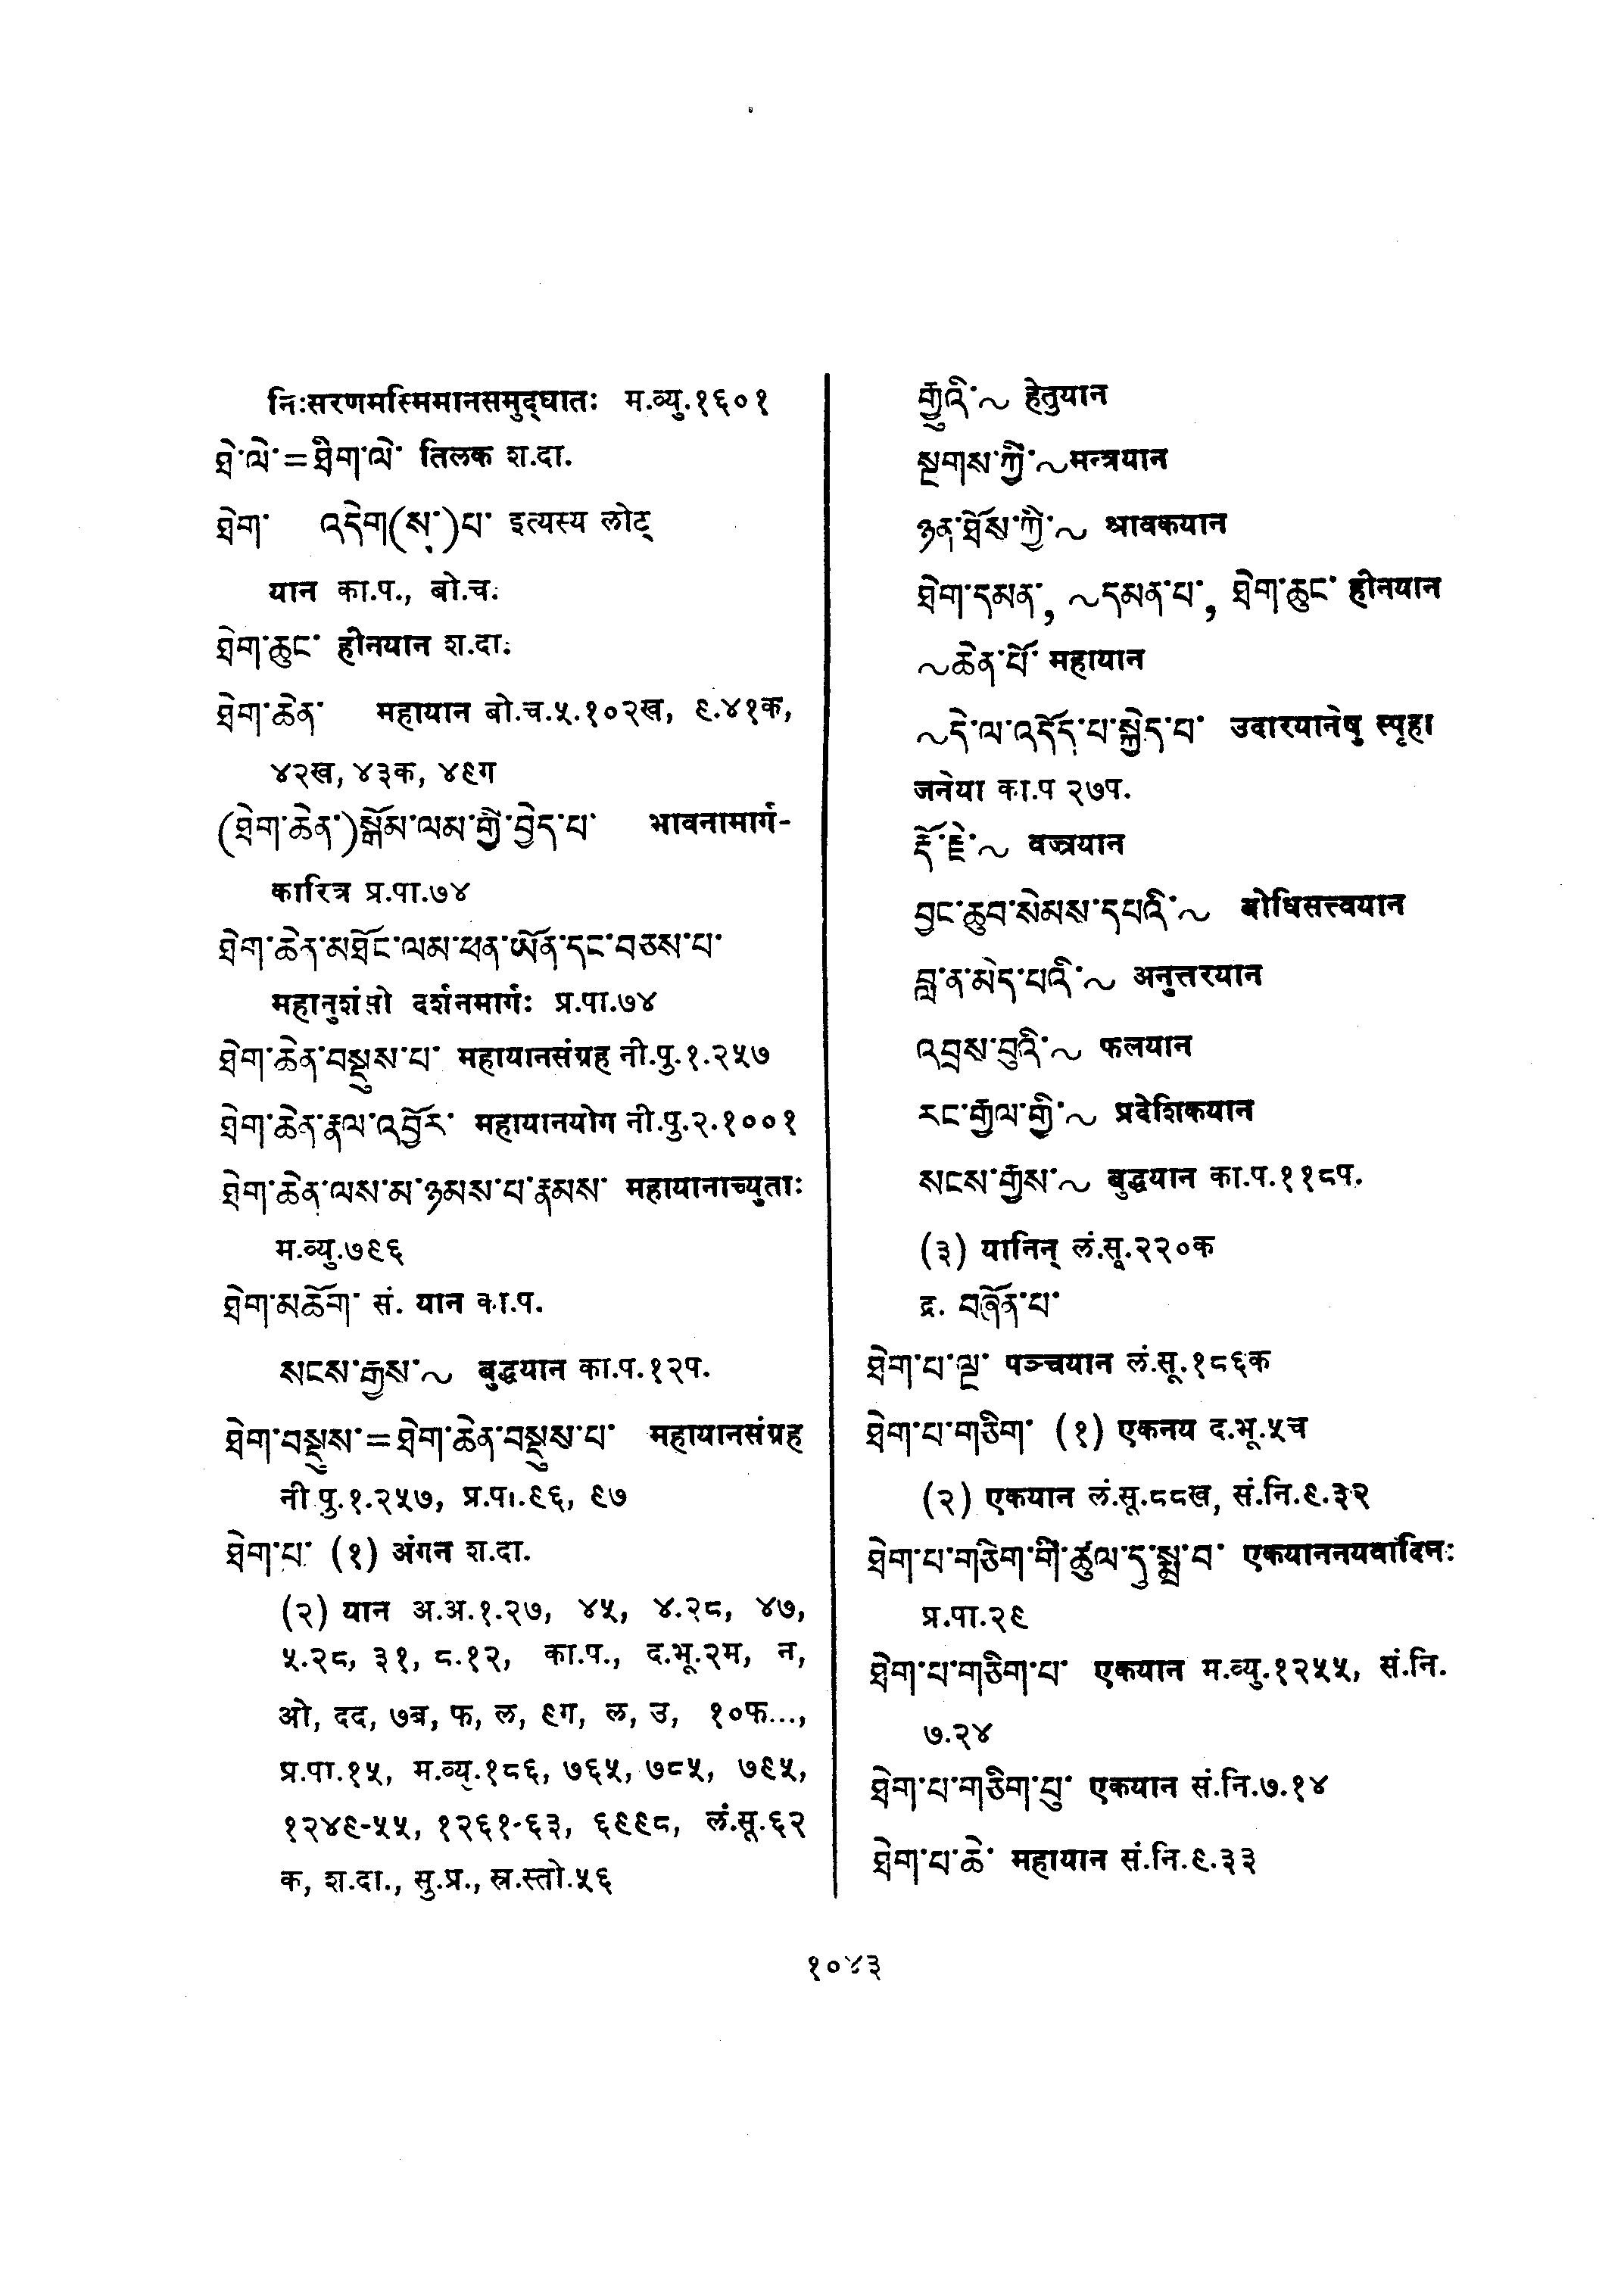 निःसरणमस्मिमानसमुद्घातः म.व्यु.१६०१
ཐེ་ལེ་=ཐིག་ལེ་ तिलक श.दा.
ཐེག་ འདེག(ས་)པ་ इत्यस्य लोट्
यान का.प., बो.च.
ཐེག་ཆུང་ हीनयान श.दा.
ཐེག་ཆེན་ महायान बो.च.५.१०२ख, ९.४१क,
४२ख, ४३क, ४९ग
(ཐེག་ཆེན་)སྒོམ་ལམ་གྱི་བྱེད་པ་ भावनामार्ग-
कारित्र प्र.पा.७४
ཐེག་ཆེན་མཐོང་ལམ་ཕན་ཡོན་དང་བཅས་པ་
महानुशंसो दर्शनमार्गः प्र.पा.७४
ཐེག་ཆེན་བསྡུས་པ་ महायानसंग्रह नी.पु.१.२५७
ཐེག་ཆེན་རྣལ་འབྱོར་ महायानयोग नी.पु.२.१००१
ཐེག་ཆེན་ལས་མ་ཉམས་པ་རྣམས་ महायानाच्युताः
म.व्यु.७९६
ཐེག་མཆོག་ सं. यान का.प.
སངས་རྒྱས་~ बुद्धयान का.प.१२प.
ཐེག་བསྡུས་=ཐེག་ཆེན་བསྡུས་པ་ महायानसंग्रह
नी.पु.१.२५७, प्र.पा.९६, ९७
ཐེག་པ་ (१) अंगन श.दा.
(२) यान अ.अ.१.२७, ४५, ४.२८, ४७,
५.२८, ३१, ८.१२, का.प., द.भू.२म, न,
ओ, दद, ७ब, फ, ल, ९ग, ल, उ, १०फ...,
प्र.पा.१५, म.व्यु.१८६, ७६५, ७८५, ७९५,
१२४९-५५, १२६१-६३, ६९९८, लं.सू.६२
क, श.दा., सु.प्र., स्र.स्तो.५६
རྒྱུའི་~ हेतुयान
སྔགས་ཀྱི་~मन्त्रयान
ཉན་ཐོས་ཀྱི་~ श्रावकयान
ཐེག་དམན་, ~དམན་པ་, ཐེག་ཆུང་ हीनयान
~ཆེན་པོ་ महायान
~དེ་ལ་འདོད་པ་སྐྱེད་པ་ उदारयानेषु स्पृहा
जनेया का.प २७प.
རྡོ་རྗེ་~ वज्रयान
བྱང་ཆུབ་སེམས་དཔའི་~ बोधिसत्त्वयान
བླ་ན་མེད་པའི་~ अनुत्तरयान
འབྲས་བུའི་~ फलयान
རང་རྒྱལ་གྱི་~ प्रदेशिकयान
སངས་རྒྱས་~ बुद्धयान का.प.११८प.
(३) यानिन् लं.सू.२२०क
द्र. བཞོན་པ་
ཐེག་པ་ལྔ་ पञ्चयान लं.सू.१८६क
ཐེག་པ་གཅིག་ (१) एकनय द.भू.५च
(२) एकयान लं.सू.८८ख, सं.नि.९.३२
ཐེག་པ་གཅིག་གི་ཚུལ་དུ་སྨྲ་བ་ एकयाननयवादिनः
प्र.पा.२९
ཐེག་པ་གཅིག་པ་ एकयान म.व्यु.१२५५, सं.नि.
७.२४
ཐེག་པ་གཅིག་པུ་ एकयान सं.नि.७.१४
ཐེག་པ་ཆེ་ महायान सं.नि.९.३३
१०४३